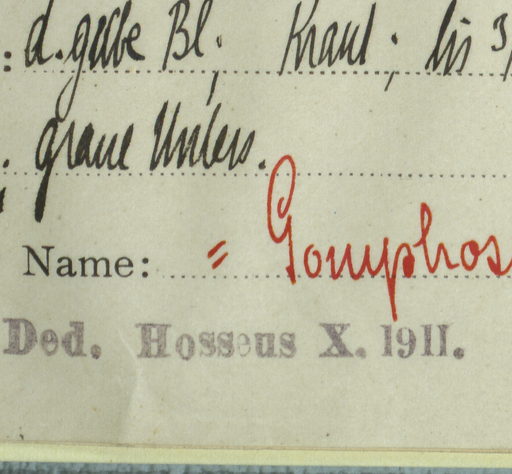 : d. gelbe Bl; Kraut; bis 3
graue Unters.
Name: = Gomphos
Ded. Hosseus X. 1911.